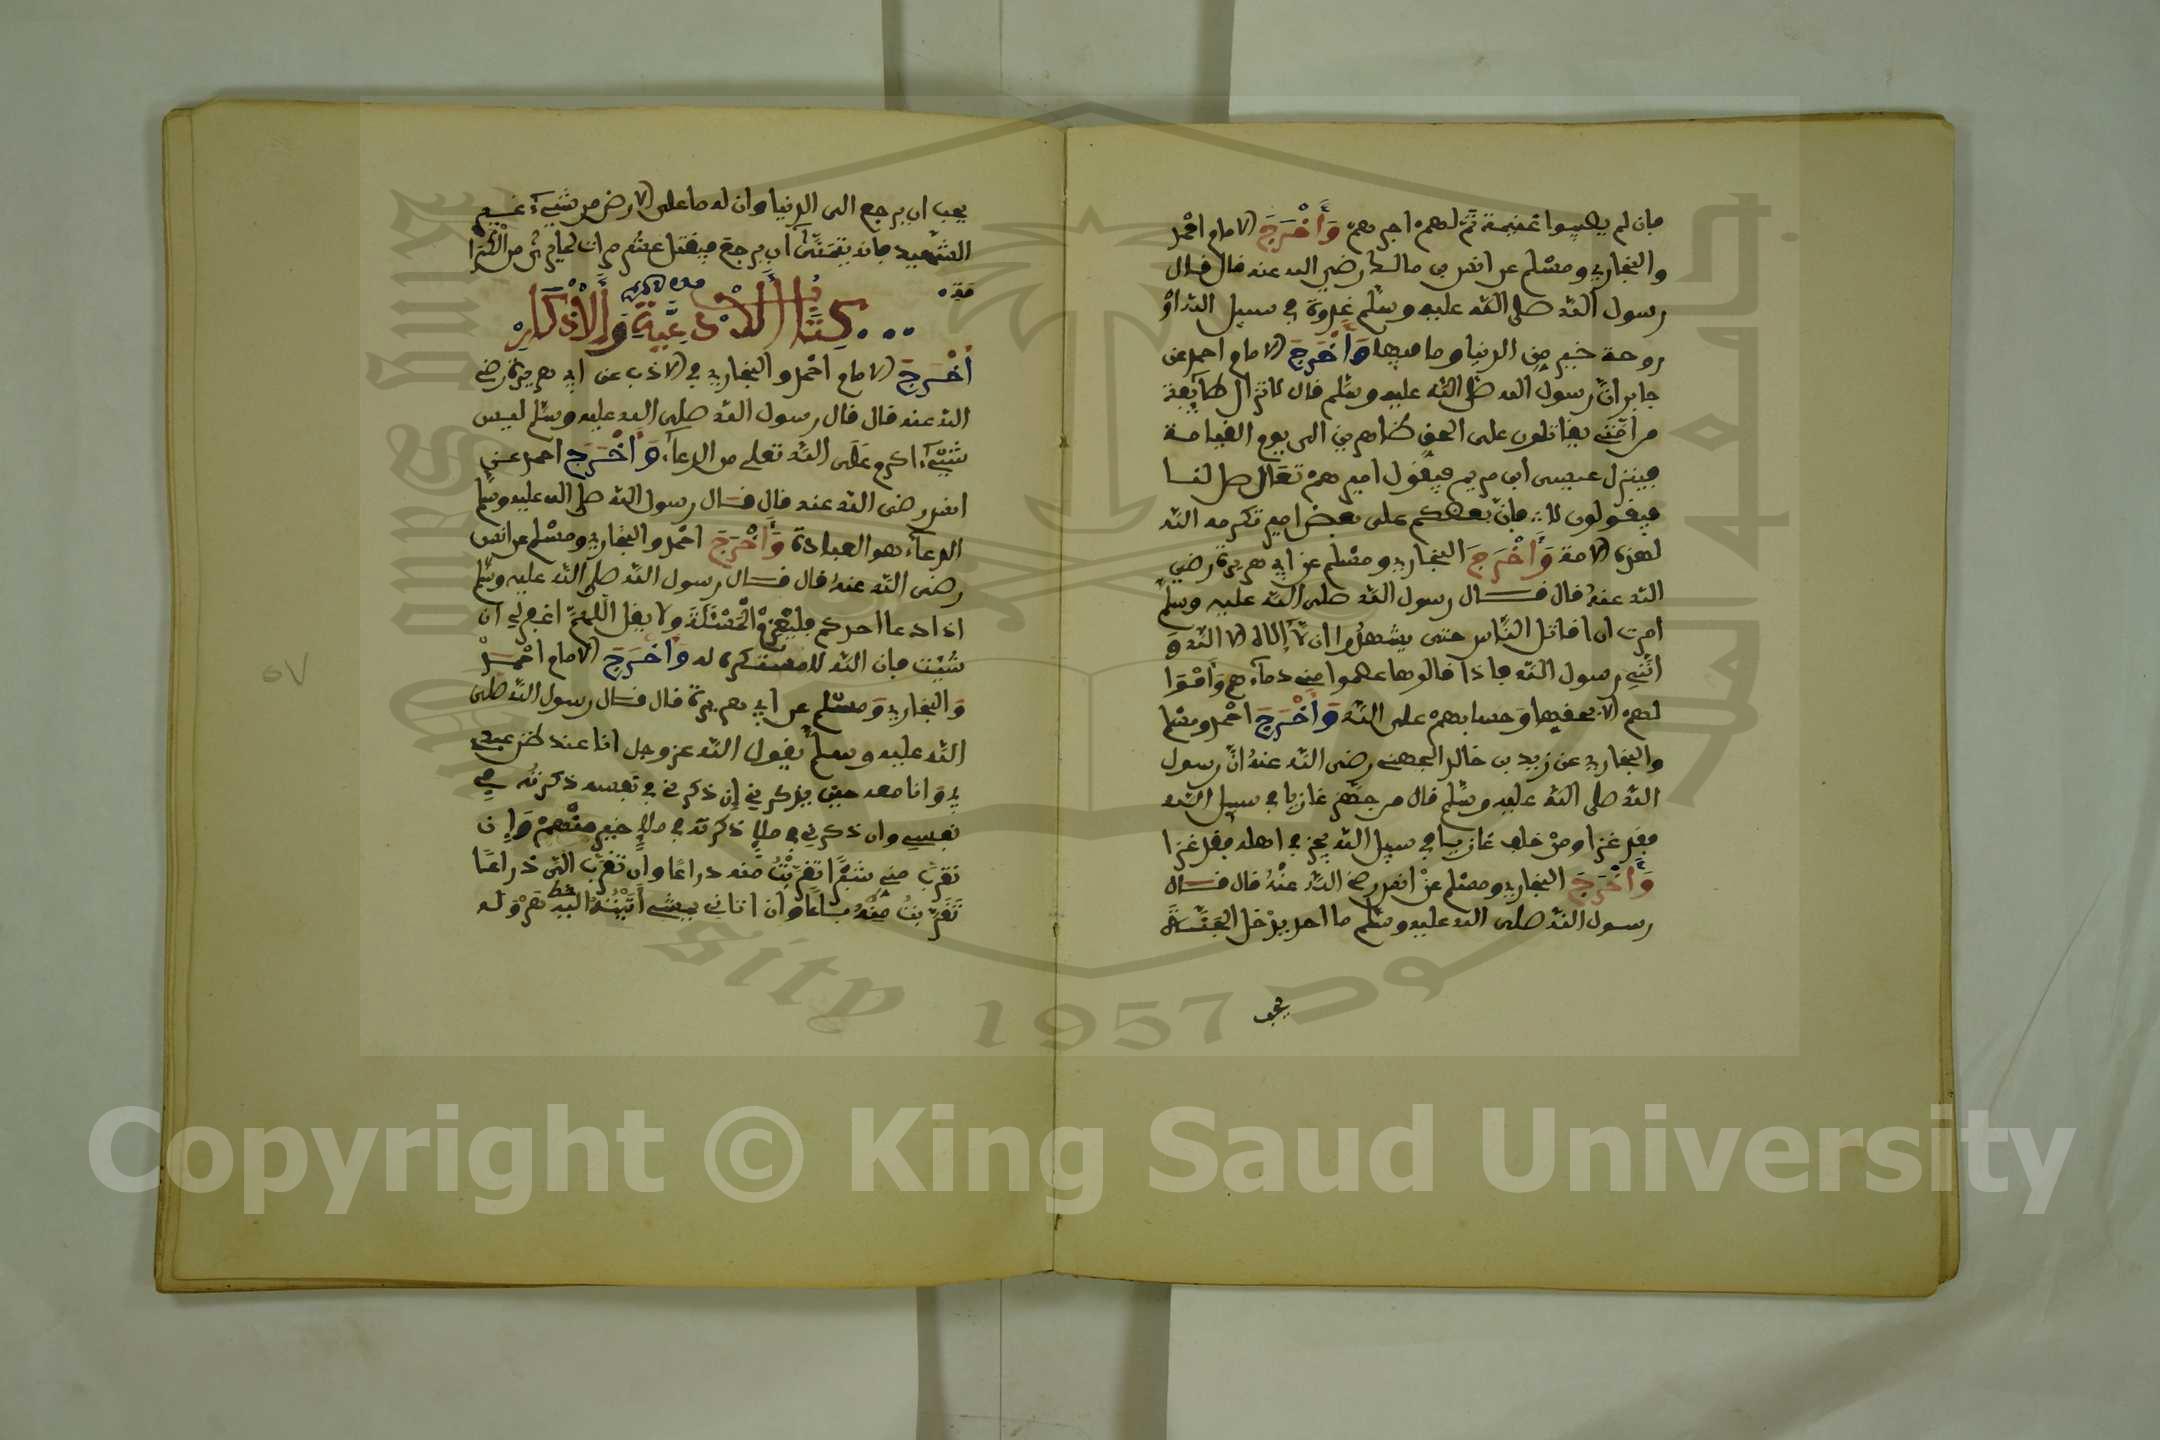 فان لم يصيبوا غنيمة تم لهم اجرهم وَأَخْرَجَ الامام احمد
والبخاري ومسلم عن انس بن مالك رضي الله عنه قال قال
رسول الله صلى الله عليه وسلم غدوة في سبيل الله او
روحة خير من الدنيا وما فيها وَأَخْرَجَ الامام احمد عن
جابر ان رسول الله صلى الله عليه وسلم قال لا تزال طائفة
من امتي يقاتلون على الحق ظاهرين الى يوم القيامة
فينزل عيسى ابن مريم فيقول اميرهم تعال صل لنا
فيقولون لا فان بعضكم على بعض امير تكرمه الله
لهذه الامة وَأَخْرَجَ البخاري ومسلم عن ابي هريرة رضي
الله عنه قال قال رسول الله صلى الله عليه وسلم
امرت ان اقاتل الناس حتى يشهدوا ان لا إلاه الا الله و
انني رسول الله فاذا قالوها عصموا مني دماءهم وأموا
لهم الا بحقها وحسابهم على الله وَأَخْرَجَ احمد ومسلم
والبخاري عن زيد بن خالد الجهني رضى الله عنه ان رسول
الله صلى الله عليه وسلم قال من جهز غازيا في سبيل الله
فقد غزا ومن خلف غازيا في سبيل الله بخير في اهله فقد غزا
وَأَخْرَجَ البخاري ومسلم عن انس رضي الله عنه قال قال
رسول الله صلى الله عليه وسلم ما احد يدخل الجنة
يحب
يحب ان يرجع الى الدنيا وان له ما على الارض من شيء غير
الشهيد فانه يتمنى ان يرجع فيقتل عشر مرات لما يرى من الكرا
مة
كِتَابُ الْأَدْعِيَةِ وَالْأَذْكَارِ
أَخْرَجَ الامام احمد والبخاري في الادب عن ابي هريرة رضي
الله عنه قال قال رسول الله صلى الله عليه وسلم ليس
شيء اكرم على الله تعلى من الدعاء وَأَخْرَجَ احمد عن
انس رضى الله عنه قال قال رسول الله صلى الله عليه وسلم
الدعاء هو العبادة وَأَخْرَجَ احمد والبخاري ومسلم عن انس
رضى الله عنه قال قال رسول الله صلى الله عليه وسلم
اذا دعا احدكم فليعزم المسئلة ولا يقل اللهم اغفر لي ان
شئت فان الله لا مستكره له وَأَخْرَجَ الامام احمد
والبخاري ومسلم عن ابي هريرة قال قال رسول الله صلى
الله عليه وسلم يقول الله عز وجل انا عند ظن عبدي
بي وانا معه حين يذكرني إن ذكرني في نفسه ذكرته في
نفسي وان ذكرني في ملإ ذكرته في ملإ خير منهم وإن
تقرب مني شبرا تقربت منه ذراعا وان تقرب الي ذراعا
تقربت منه باعا وان اتاني يمشي أتيته هرولة
٥٧
Copyright © King Saud University
1957